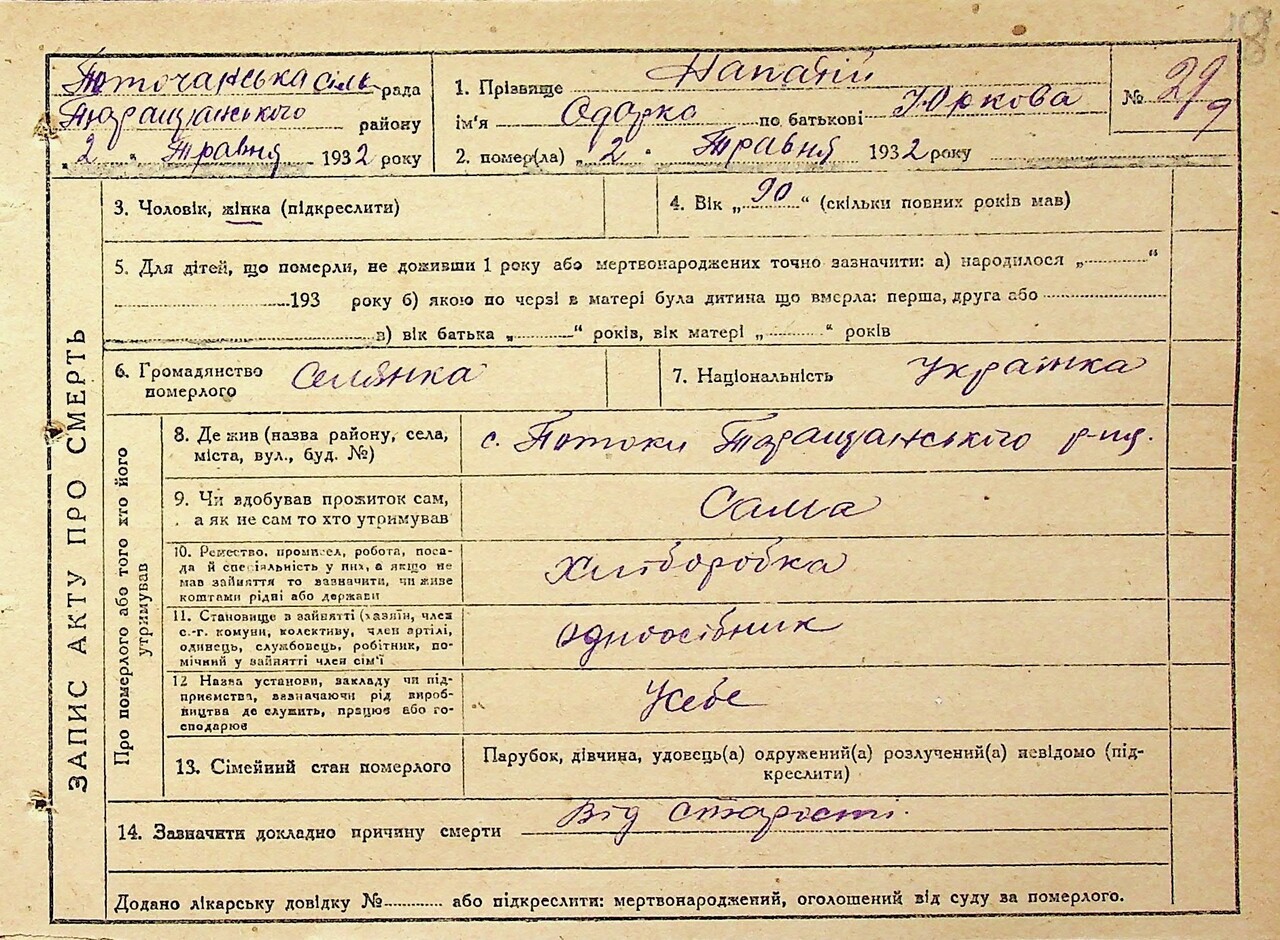 Поточанська сіль рада
Таращанського району
„ 2 " Травня 1932 року
1. Прізвище Напатій
ім'я Одарка по батькові Юркова
2. помер(ла) „ 2 " Травня 1932 року
№ 29
9
3. Чоловік, жінка (підкреслити)
4. Вік „ 90 “ (скільки повних років мав)
5. Для дітей, що померли, не доживши 1 року або мертвонароджених точно зазначити: а) народилося „ “
193 року б) якою по черзі в матері була дитина що вмерла: перша, друга або
в) вік батька „ “ років, вік матері „ “ років
6. Громадянство
померлого
Селянка
7. Національність Українка
ЗАПИС АКТУ ПРО СМЕРТЬ
Про померлого або того хто його
утримував
8. Де жив (назва району, села,
міста, вул., буд. №)
с. Потоки Таращанського р-ну.
9. Чи здобував прожиток сам,
а як не сам то хто утримував
Сама
10. Ремество, промисел, робота, поса-
да й спеціяльність у них, а якщо не
мав зайняття то зазначити, чи живе
коштами рідні або держави
Хліборобка
11. Становище в зайнятті (хазяїн, член
с.-г. комуни, колективу, член артілі,
одинець, службовець, робітник, по-
мічний у зайнятті член сім'ї
Одноосібник
12 Назва установи, закладу чи під-
приємства, зазначаючи рід вироб-
ництва де служить, працює або го-
сподарює
Усебе
13. Сімейний стан померлого
Парубок, дівчина, удовець(а) одружений(а) розлучений(а) невідомо (під-
креслити)
14. Зазначити докладно причину смерти Від старости.
Додано лікарську довідку № або підкреслити: мертвонароджений, оголошений від суду за померлого.